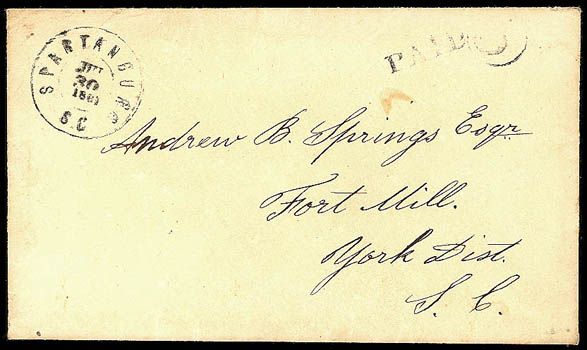 SPARTANBURG
30
1861
S.C
PAID
Andrew B. Springs Esqr
Fort Mill.
York Dist.
S. C.